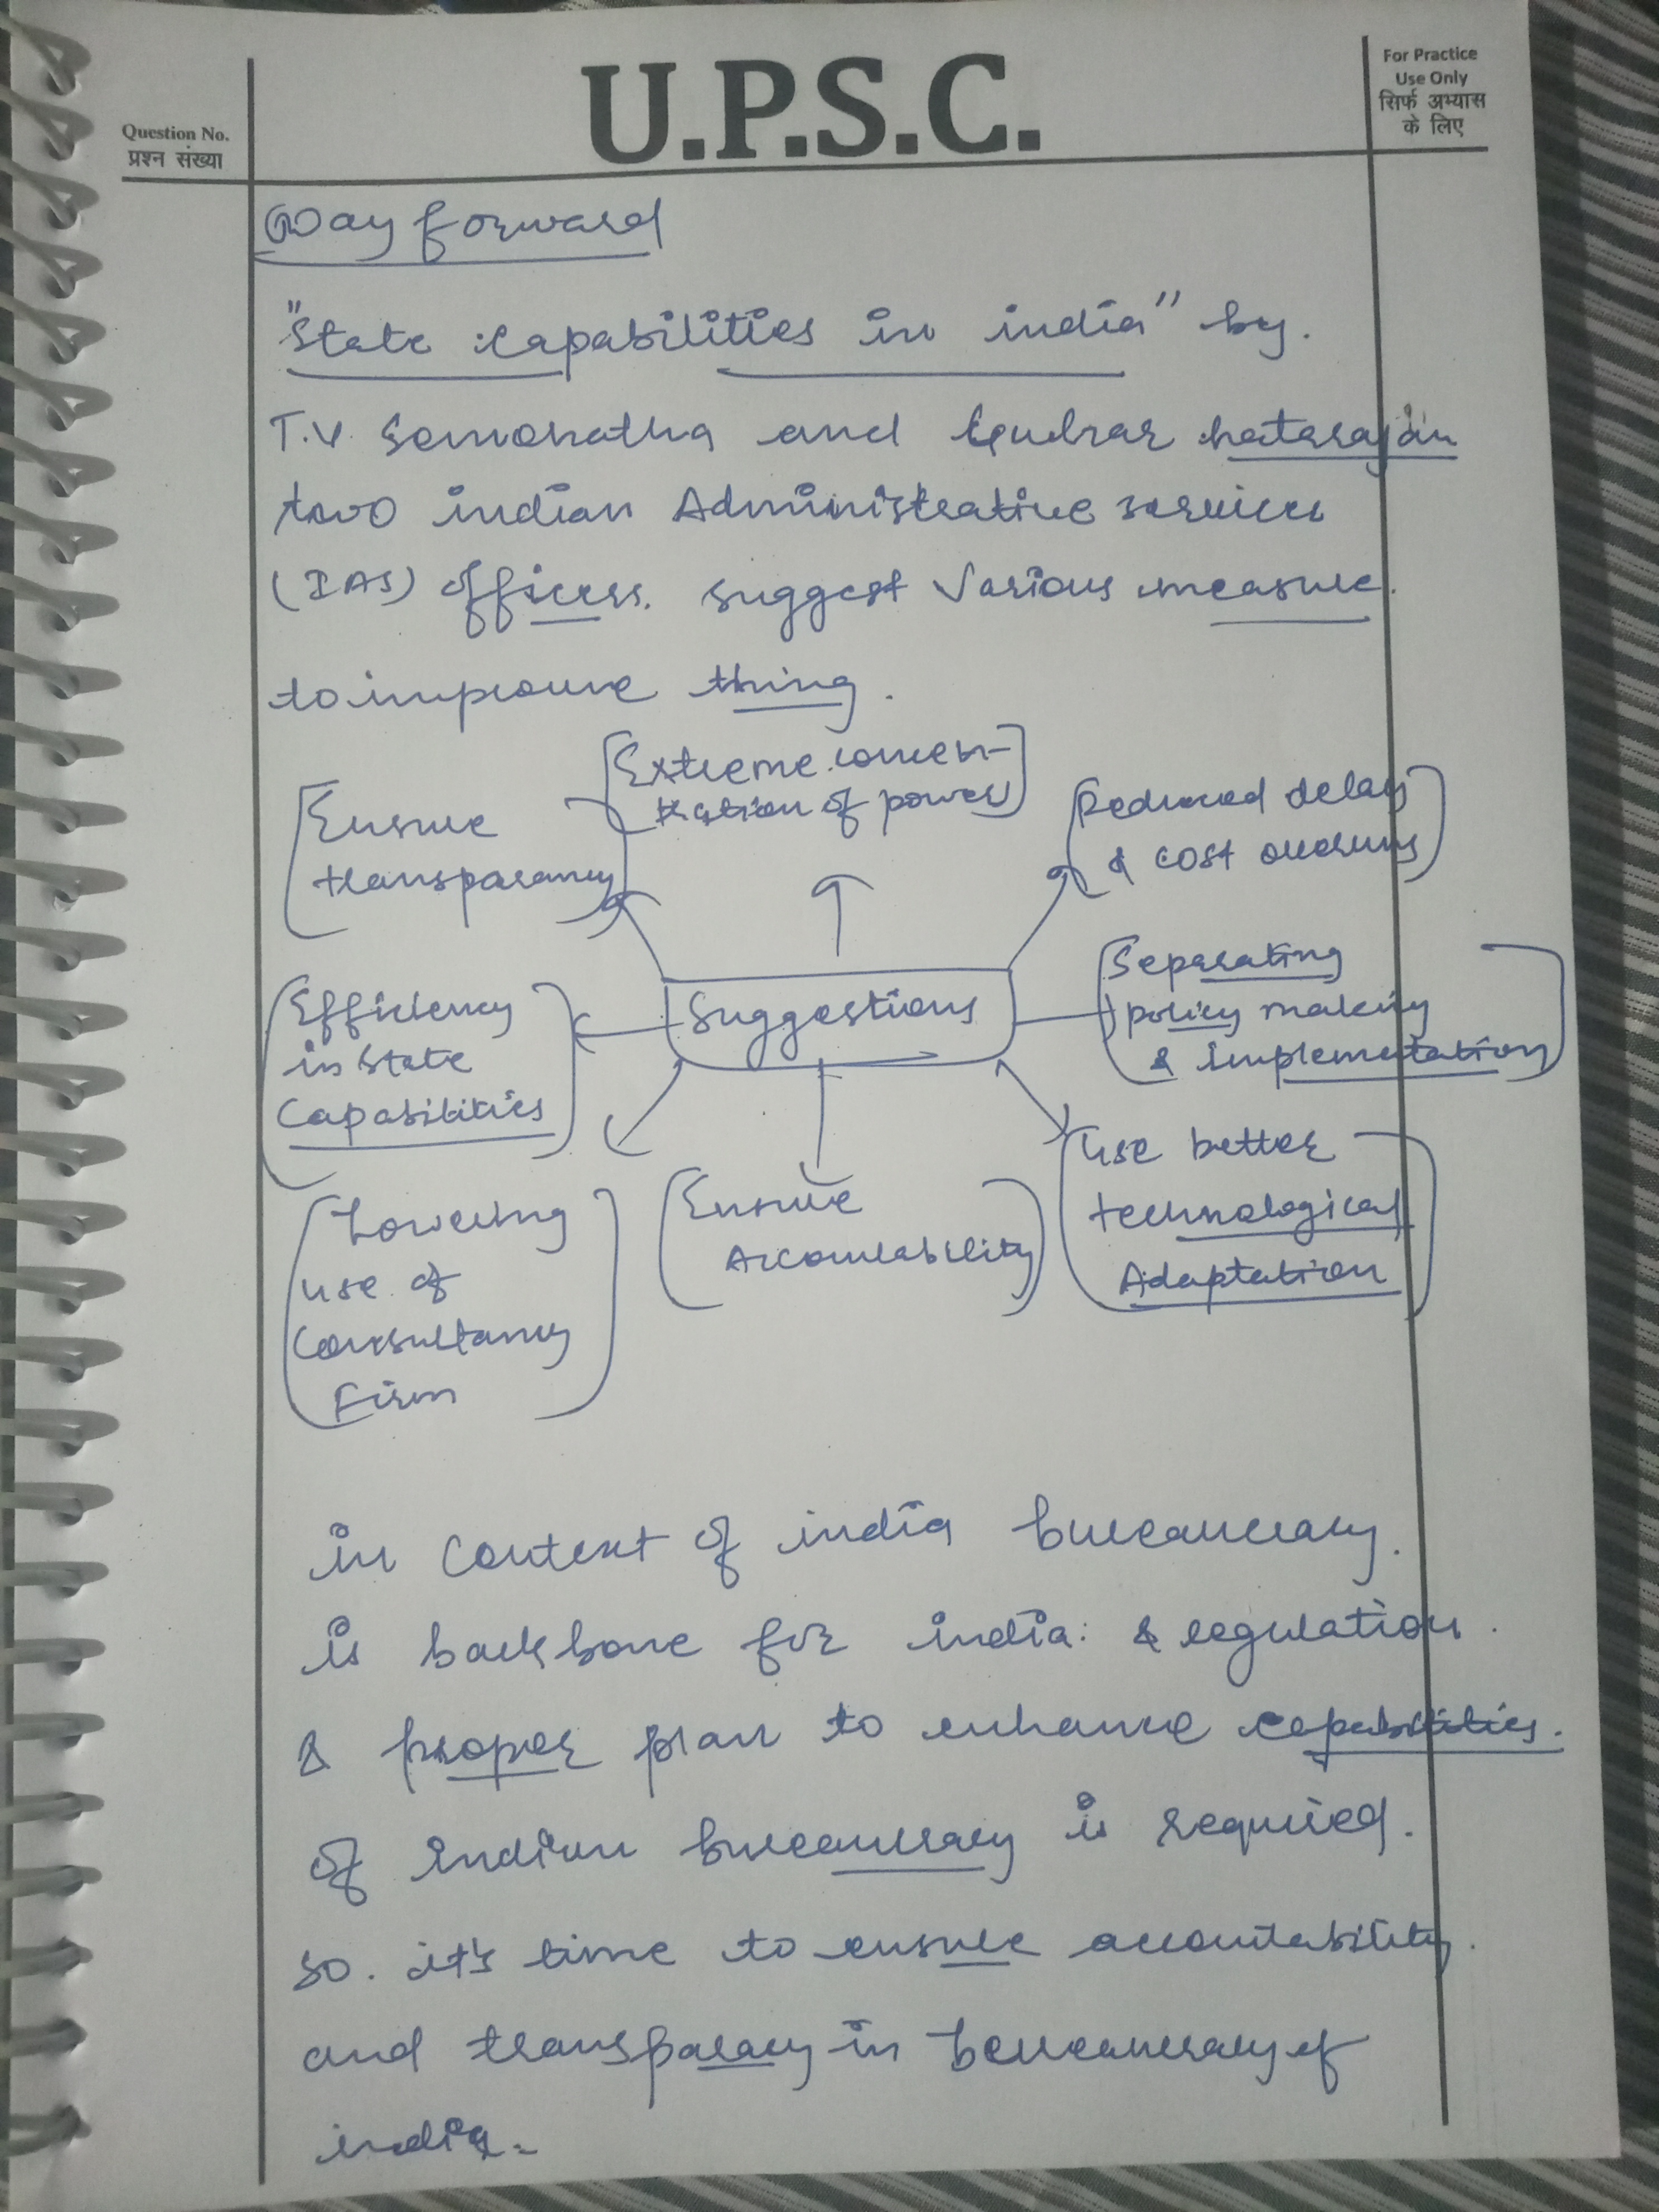 Question No.
प्रश्न संख्या
U.P.S.C.
For Practice
Use Only
सिर्फ अभ्यास
के लिए
Way forward
"State capabilities in india" by.
T.V. Somonatha and Gulzar natarajan
two indian Administrative services
(IAS) officers. suggest various measure.
to improve thing.
Extreme concen-
tration of power
Ensure
transparancy
Reduced delay
& cost overruns
Suggestions
Separating
policy making
& implementation
Efficiency
in state
Capabilities
Use better
technological
Adaptation
Ensure
Accountability
Lowering
use of
Consultancy
Firm
in context of india bureaucracy.
is backbone for india: & regulation.
& proper plan to enhance capabilities.
of indian bureaucracy is required.
so. it's time to ensure accountability.
and transparacy in bureaucracy of
india.